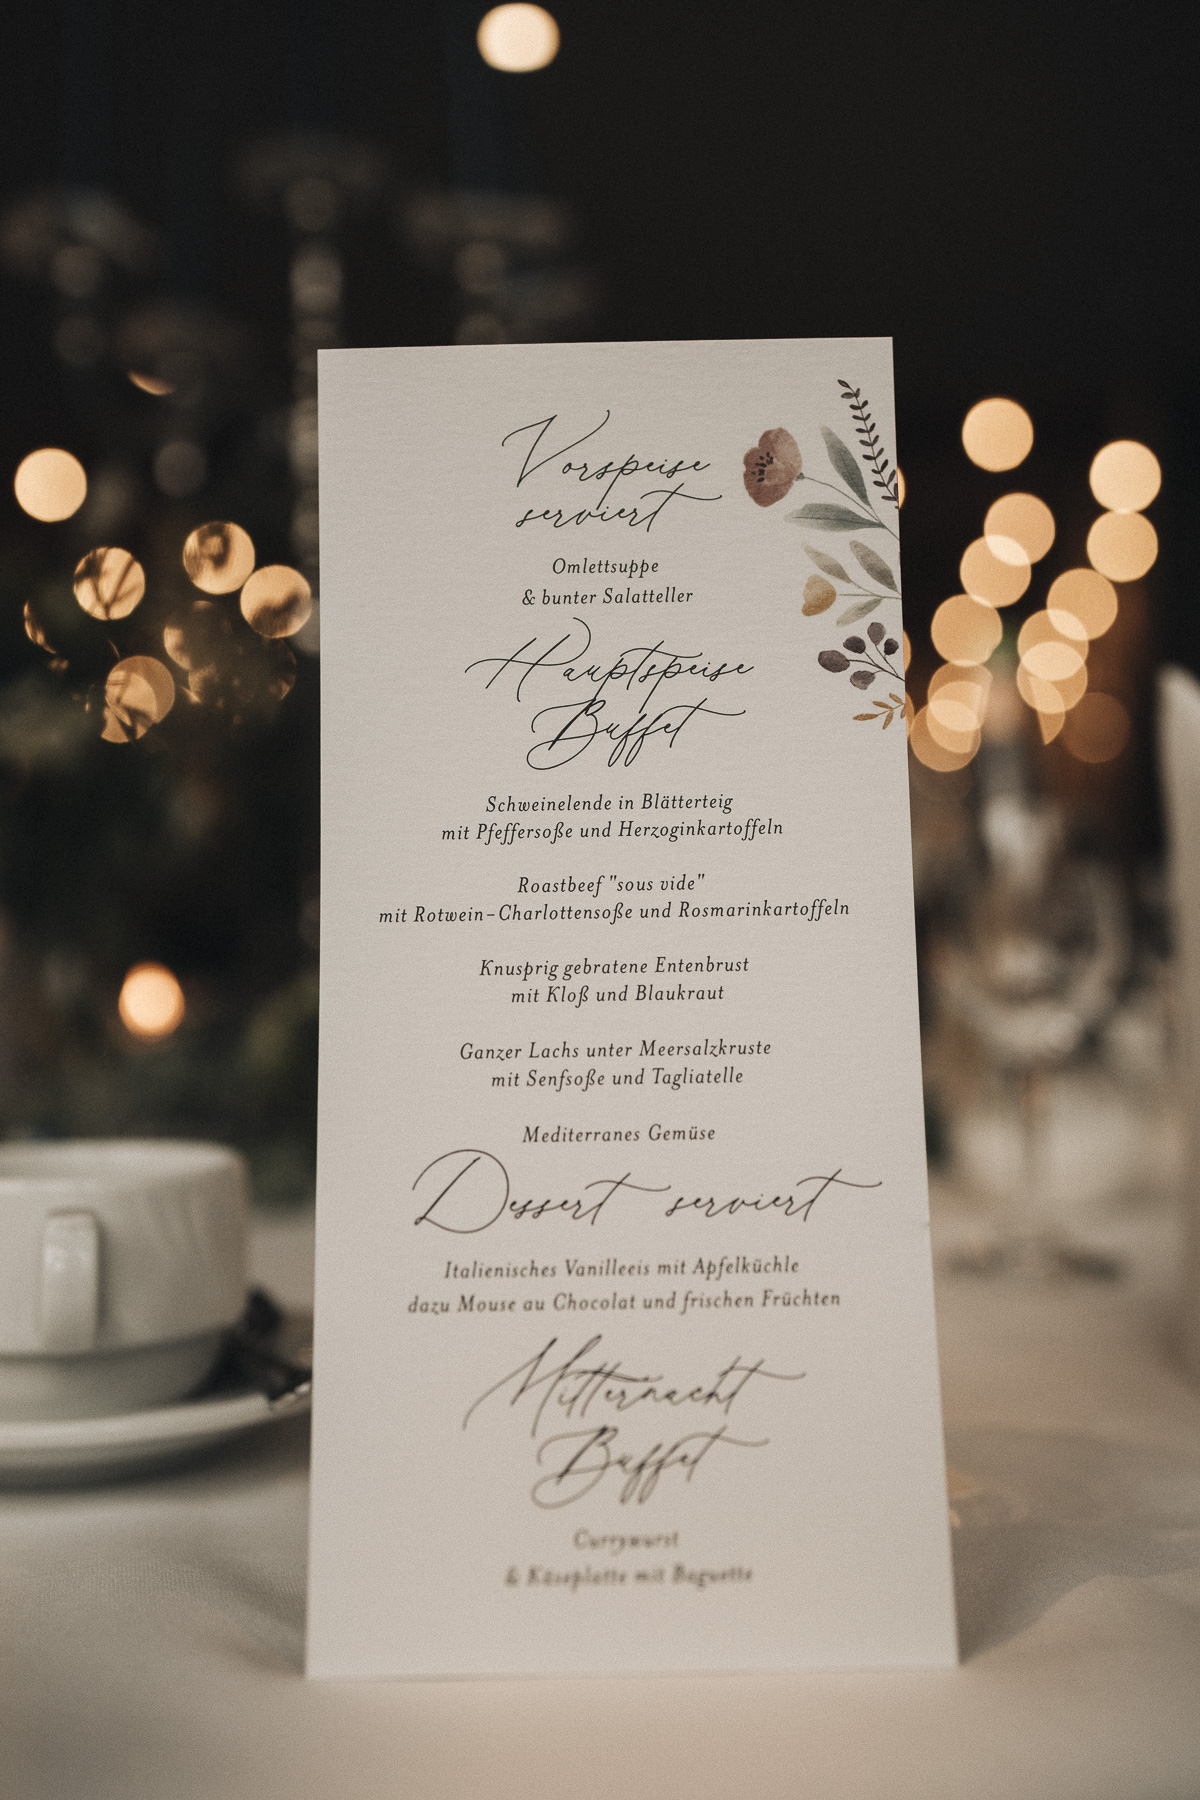 Vorspeise
serviert
Omlettsuppe
& bunter Salatteller
Hauptspeise
Buffet
Schweinelende in Blätterteig
mit Pfeffersoße und Herzoginkartoffeln
Roastbeef "sous vide"
mit Rotwein-Charlottensoße und Rosmarinkartoffeln
Knusprig gebratene Entenbrust
mit Kloß und Blaukraut
Ganzer Lachs unter Meersalzkruste
mit Senfsoße und Tagliatelle
Mediterranes Gemüse
Dessert serviert
Italienisches Vanilleeis mit Apfelküchle
dazu Mouse au Chocolat und frischen Früchten
Mitternacht
Buffet
Currywurst
& Käseplatte mit Baguette